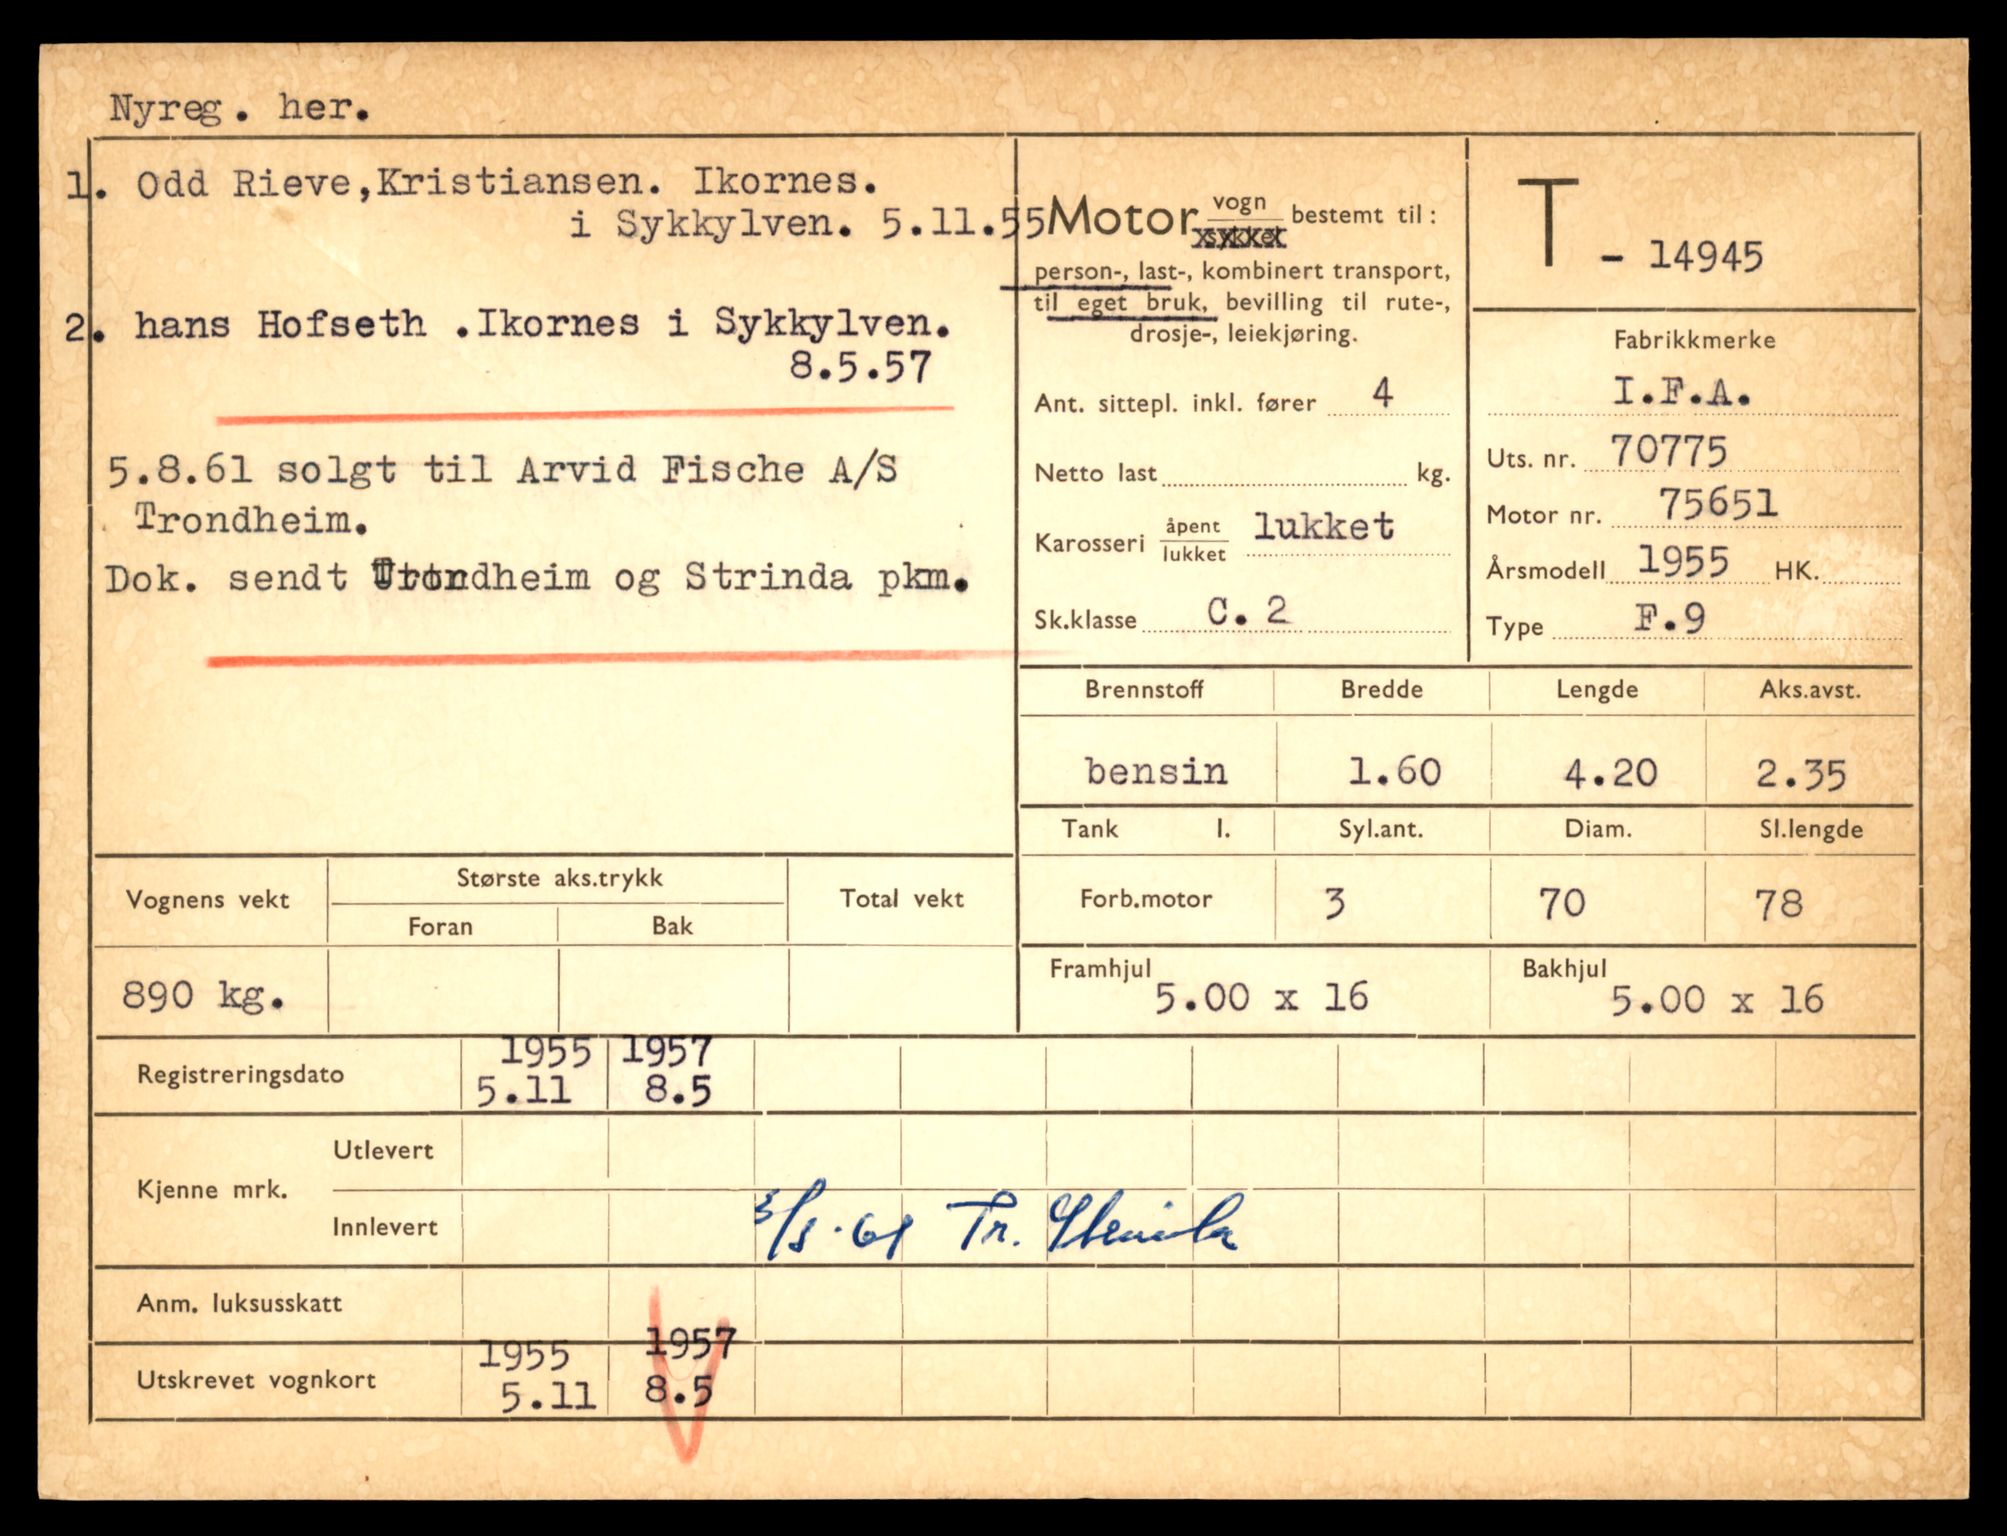 Nyreg. her.
1. Odd Rieve,Kristiansen. Ikornes.
i Sykkylven. 5.11.55
2. hans Hofseth .Ikornes i Sykkylven.
8.5.57
5.8.61 solgt til Arvid Fische A/S
Trondheim.
Dok. sendt Trondheim og Strinda pkm.
Motor vogn bestemt til:
sykkel
person-, last-, kombinert transport,
til eget bruk, bevilling til rute-,
drosje-, leiekjøring.
Ant. sittepl. inkl. fører 4
Netto last kg.
Karosseri åpent lukket
lukket
Sk.klasse C.2
T - 14945
Fabrikkmerke
I.F.A.
Uts. nr. 70775
Motor nr. 75651
Årsmodell 1955 HK.
Type F.9
Brennstoff Bredde Lengde Aks.avst.
bensin 1.60 4.20 2.35
Tank l. Syl.ant. Diam. Sl.lengde
Forb.motor 3 70 78
Framhjul Bakhjul
5.00 x 16 5.00 x 16
Vognens vekt Største aks.trykk Total vekt
Foran Bak
890 kg.
Registreringsdato 1955 1957
5.11 8.5
Kjenne mrk. Utlevert
Innlevert 61 Tr.
Anm. luksusskatt
Utskrevet vognkort 1955 1957
5.11 8.5